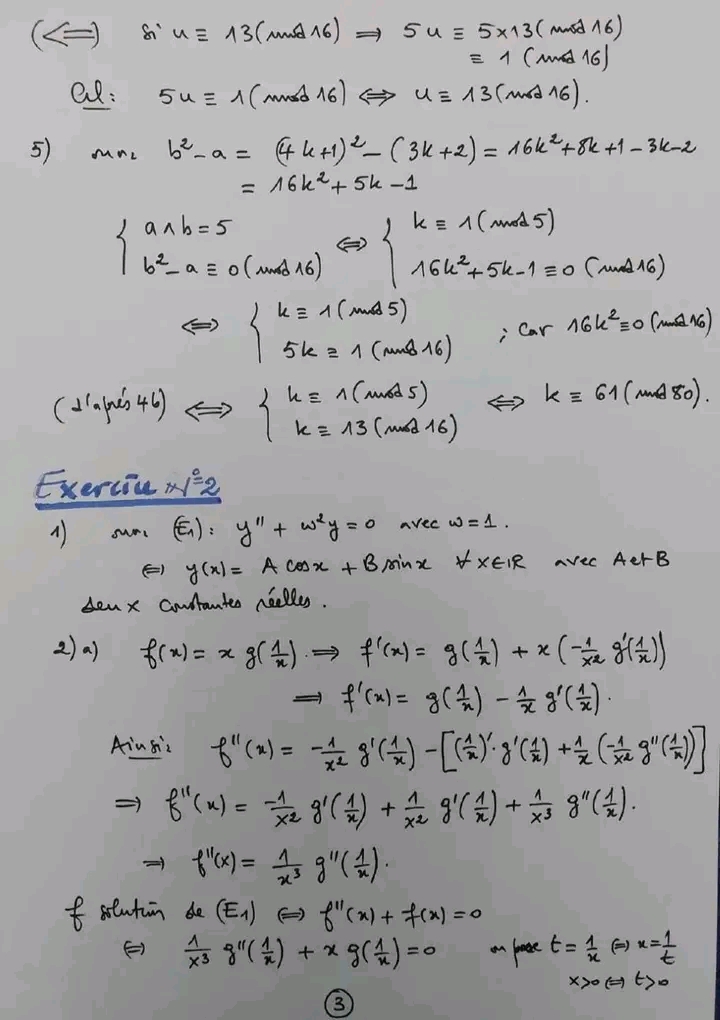 (⇐) Si u ≡ 13 (mod 16) ⇒ 5u ≡ 5×13 (mod 16)
≡ 1 (mod 16)
Cel: 5u ≡ 1 (mod 16) ⇔ u ≡ 13 (mod 16).
5) b² - a = (4k+1)² - (3k+2) = 16k² + 8k + 1 - 3k - 2
= 16k² + 5k - 1
{ a ∧ b = 5 ⇔ { k ≡ 1 (mod 5)
b² - a ≡ 0 (mod 16) 16k² + 5k - 1 ≡ 0 (mod 16)
⇔ { k ≡ 1 (mod 5)
5k ≡ 1 (mod 16) ; car 16k² ≡ 0 (mod 16)
(d'après 4b) ⇔ { k ≡ 1 (mod 5) ⇔ k ≡ 61 (mod 80).
k ≡ 13 (mod 16)
Exercice N°2
1) (E₁): y'' + w²y = 0 avec w = 1.
⇔ y(x) = A cos x + B sin x ∀ x ∈ IR avec A et B
deux constantes réelles.
2) a) f(x) = x g(1/x) ⇒ f'(x) = g(1/x) + x(-1/x² g'(1/x))
⇒ f'(x) = g(1/x) - 1/x g'(1/x).
Ainsi: f''(x) = -1/x² g'(1/x) - [(1/x)'· g'(1/x) + 1/x (-1/x² g''(1/x))]
⇒ f''(x) = -1/x² g'(1/x) + 1/x² g'(1/x) + 1/x³ g''(1/x).
⇒ f''(x) = 1/x³ g''(1/x).
f solution de (E₁) ⇔ f''(x) + f(x) = 0
⇔ 1/x³ g''(1/x) + x g(1/x) = 0 on pose t = 1/x ⇔ x = 1/t
x>0 ⇔ t>0
3